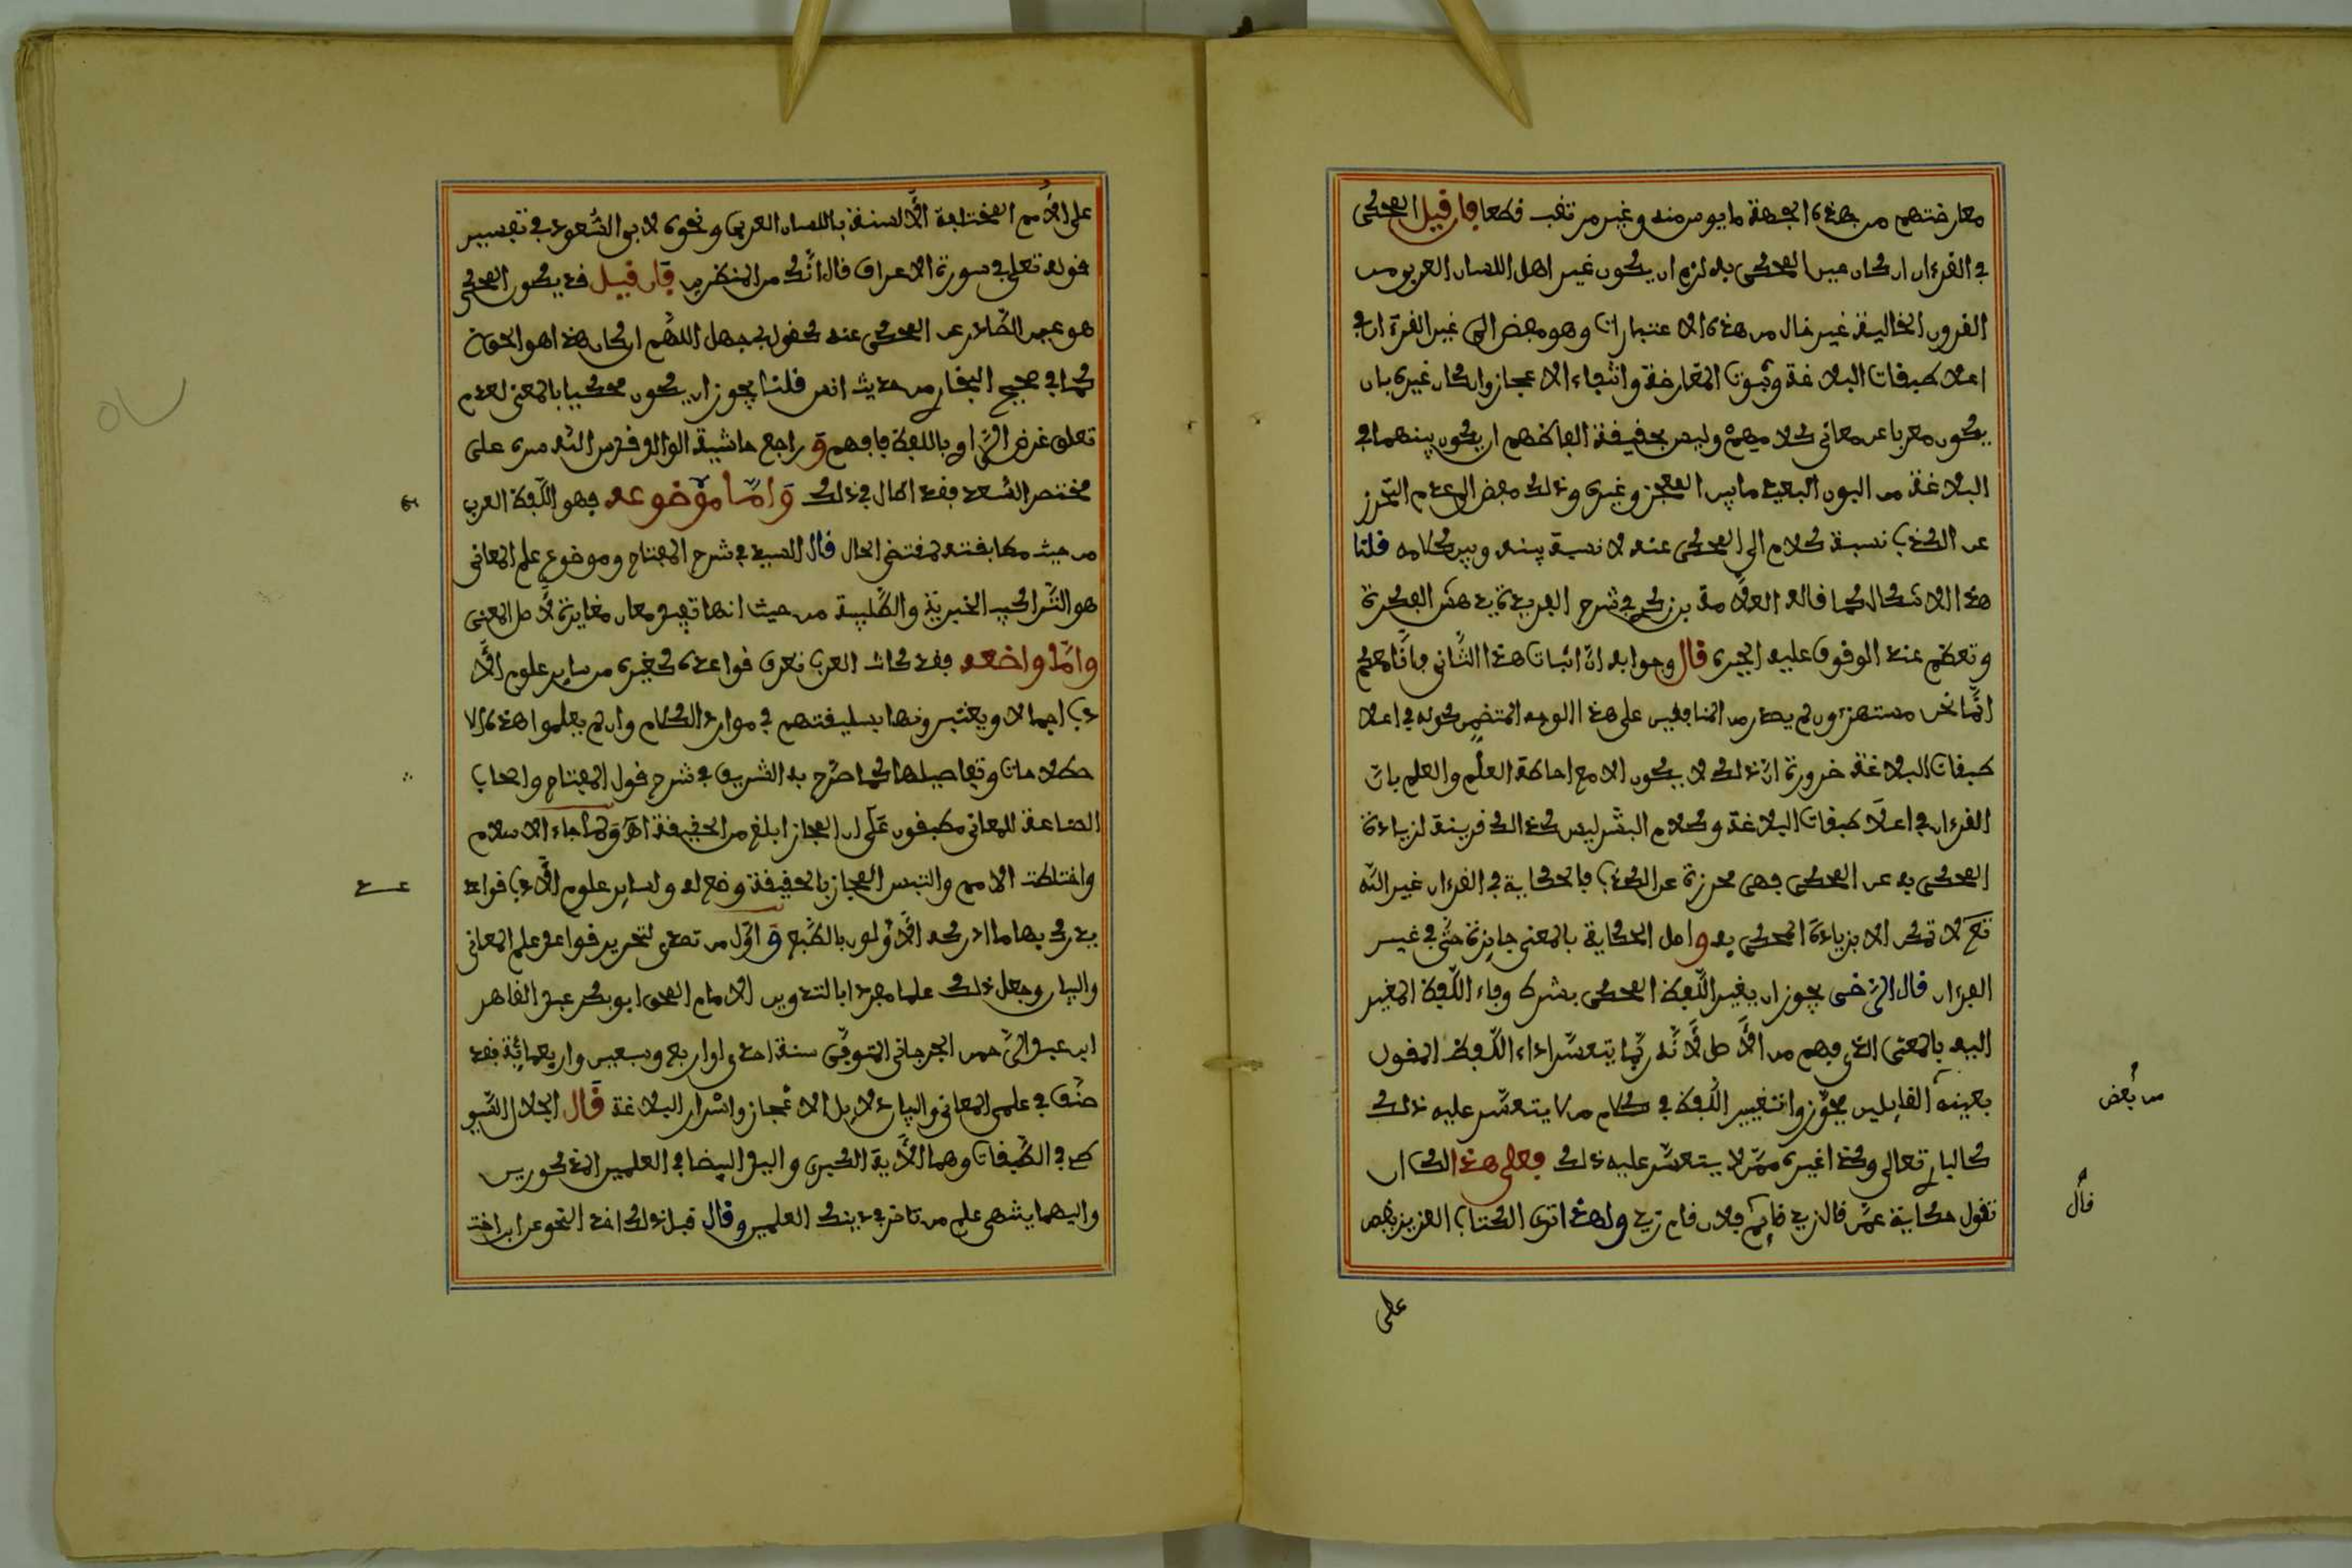 معارضتهم من هذه الجهة مايوس منه وغير مرتقب قطعا فان قيل المحكي
في القرءان ان كان عين المحكي به لزم ان يكون غير اهل اللسان العربي من
القرون الخالية غير خال من هذه الاعتبارات وهو مفض الى غير القرءان في
اعلا طبقات البلاغة وثبوت المعارضة وانتفاء الاعجاز وان كان غيره بان
يكون معربا عن معاني كلاميهم وليس بحقيقة الفاظهم ان يكون بينهما في
البلاغة من البون البعيد ما بين المعجز وغيره وذلك مفض الى عدم التحرز
عن الكذب نسبة كلام الى المحكي عنه لا نسبة بينه وبين كلامه قلنا
هذا الاشكال كما قاله العلامة بن زكري في شرح الفريدة يدهش الفكرة
وتعظم عند الوقوف عليه الحيرة قال وجوابه ان اثبات هذا الثاني فانا معكم
انما نحن مستهزءون لم يصدر من المنافقين على هذا الوجه المتضمن كونه في اعلا
طبقات البلاغة ضرورة ان ذلك لا يكون الا مع احاطة العلم والعلم بان
القرءان في اعلا طبقات البلاغة وكلام البشر ليس كذالك قرينة لزيادة
المحكي به عن المحكي فهي محرزة عن الكذب فالحكاية في القرءان غير الله
تع لا تمكن الا بزيادة المحكي به واصل الحكاية بالمعنى جايزة حتى في غير
القرءان قال الرضي يجوز ان يغير اللفظ المحكي بشرط وفاء اللفظ المغير
اليه بالمعنى الذي فهم من الاصل لانه ربما يتعسر اداء اللفظ المقول
بعينه القايلين يجوزوا تغيير اللفظ في كلام من لا يتعسر عليه ذلك
من بعض
كالباري تعالى وكذا غيره ممن لا يتعسر عليه ذلك فعلى هذا لك ان
تقول حكاية عمن قال زيد قايم فلان قام زيد ولهذا ترى الكتاب العزيز يقص
قال
على
على الامم المختلفة الالسنة باللسان العربي ونحوه لابي السعود في تفسير
قوله تعلى في سورة الاعراف قال انك من المنظرين فان قيل قد يكون المحكي
هو عين الصادر عن المحكي عنه كقول بجهل اللهم ان كان هذا هو الحق
كما في صحيح البخاري من حديث انس قلنا يجوز ان يكون محكيا بالمعنى لعدم
تعلق غرض الراوي باللفظ فافهم وراجع حاشية الوالد قدس الله سره على
مختصر السعد فقد اطال في ذلك واما موضوعه فهو اللفظ العربي
من حيث مطابقته لمقتضى الحال قال السيد في شرح المفتاح وموضوع علم المعاني
هو التراكيب الخبرية والطلبية من حيث انها تفيد معان مغايرة لاصل المعنى
واما واضعه فقد كانت العرب تعرف قواعده كغيره من ساير علوم الاد
ب اجمالا ويعتبرونها بسليقتهم في موارد الكلام وان لم يعلموا هذه الا
صطلاحات وتفاصيلها كما صرح به الشريف في شرح قول المفتاح واصحاب
الصناعة للمعاني مطبقون على ان المجاز ابلغ من الحقيقة اهـ ولما جاء الاسلام
واختلطت الامم والتبس المجاز بالحقيقة وضع له ولساير علوم الادب قواعد
يدرك بها ما ادركه الاولون بالطبع واول من تصدى لتحرير قواعد علم المعاني
والبيان وجعل ذلك علما مفردا بالتدوين الامام ابو بكر عبد القاهر
ابن عبد الرحمن الجرجاني المتوفى سنة احدى او اربع وسبعين واربعمائة فقد
صنف في علمي المعاني والبيان دلايل الاعجاز واسرار البلاغة قال الجلال السيو
طي في الطبقات وهما الاية الكبرى واليد البيضا في العلمين المذكورين
واليهما ينتهى علم من تاخر في ذينك العلمين وقال قبل ذلك اخذ النحو عن ابن اخت